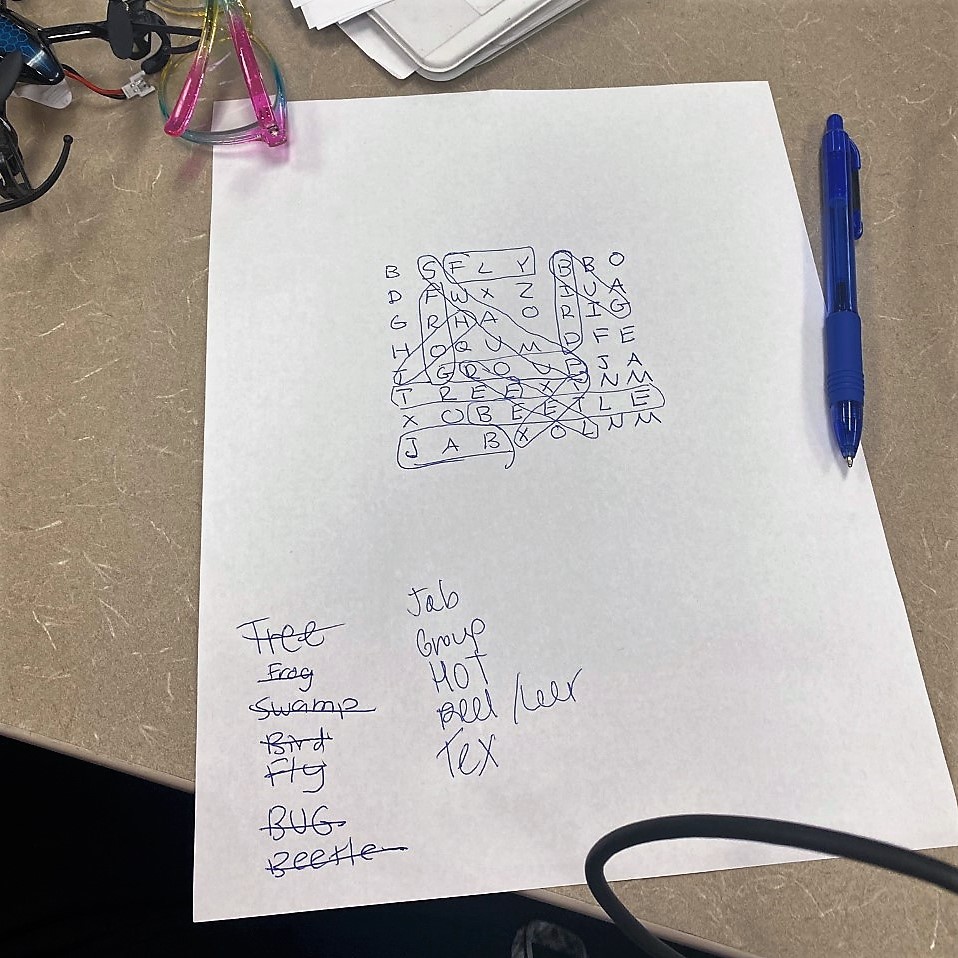 B S F L Y B B O
D F W X Z I U A
G R H A O R I G
H O Q U M D F E
I G R O U P J A
T R E E X T N M
X O B E E T L E
J A B X O L N M
Tree
Frog
Swamp
Bird
Fly
BUG
Beetle
Jab
Group
HOT
Reel / leer
Tex